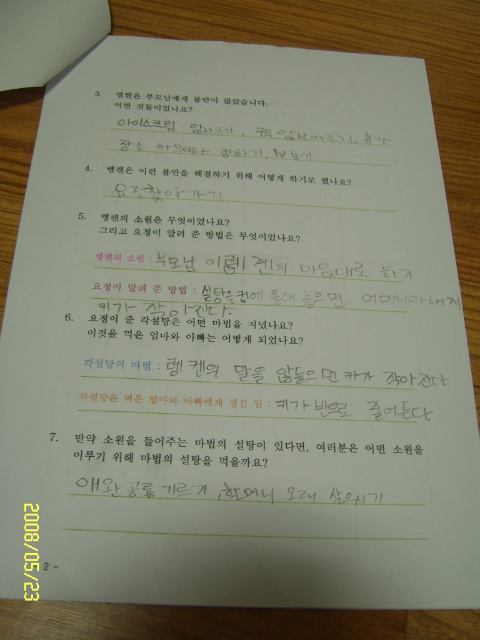 3. 렝켄은 부모님에게 불만이 많았습니다.
어떤 것들이었나요?
아이스크림 안사주기, 구두 안사주기, 휴가
장소 마음대로 정하기, TV보기
4. 렝켄은 이런 불만을 해결하기 위해 어떻게 하기로 했나요?
요정찾아가기
5. 렝켄의 소원은 무엇이었나요?
그리고 요정이 알려 준 방법은 무엇이었나요?
렝켄의 소원 : 부모님이 렝켄의 마음대로 하기
요정이 알려 준 방법 : 설탕을컵에 몰래 놓으면 어머니아버지
키가 작아진다.
6. 요정이 준 각설탕은 어떤 마법을 지녔나요?
이것을 먹은 엄마와 아빠는 어떻게 되었나요?
각설탕의 마법 : 렝켄의 말을 않들으면 키가 작아진다
각설탕을 먹은 엄마와 아빠에게 생긴 일 : 키가 반으로 줄어든다
7. 만약 소원을 들어주는 마법의 설탕이 있다면, 여러분은 어떤 소원을
이루기 위해 마법의 설탕을 먹을까요?
애완공룡 기르기, 할머니 오래 살으시기
2 -
2008/05/23